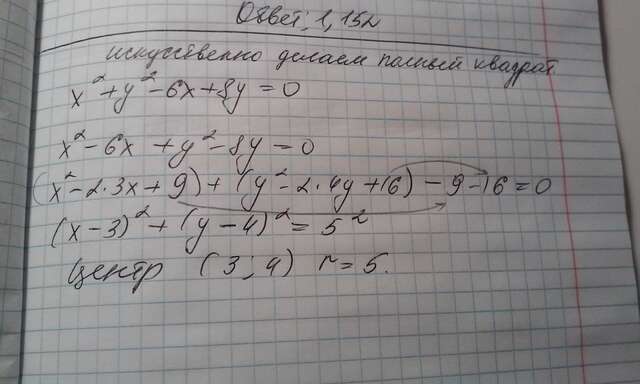 Ответ: 1,152
искусственно делаем полный квадрат
x²+y²-6x+8y=0
x²-6x+y²-8y=0
(x²-2·3x+9)+(y²-2·4y+16)-9-16=0
(x-3)²+(y-4)²=5²
Центр (3;4) r=5.